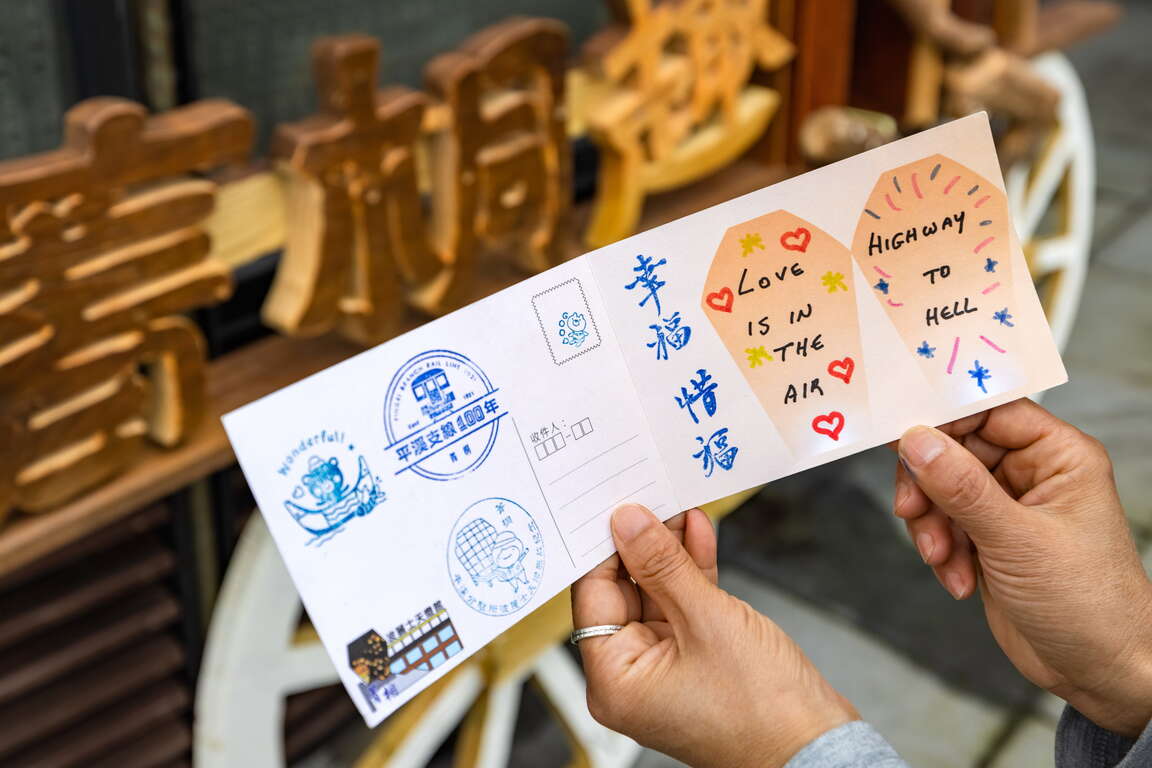 Wonderful!
PINGXI BRANCH RAIL LINE 1921
平溪支線100年
收件人：
波麗士天燈館
幸福
惜福
LOVE
IS IN
THE
AIR
HIGHWAY
TO
HELL